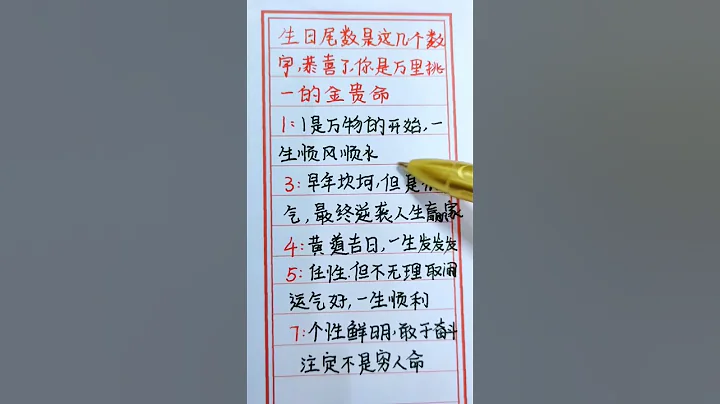 生日尾数是这几个数
字,恭喜了,你是万里挑
一的金贵命
1:1是万物的开始,一
生顺风顺水
3:早年坎坷,但是
气,最终逆袭人生赢家
4:黄道吉日,一生发发发
5:任性.但不无理取闹
运气好,一生顺利
7:个性鲜明,敢于奋斗
注定不是穷人命